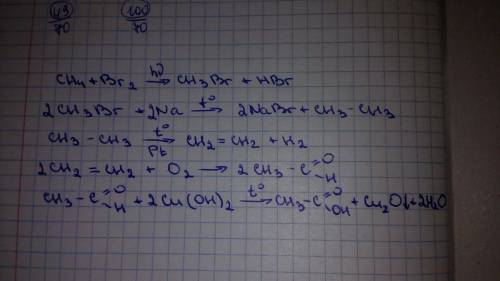 49/70 100/70
CH4 + Br2 hν→ CH3Br + HBr
2CH3Br + 2Na t°→ 2NaBr + CH3-CH3
CH3-CH3 t°→Pt CH2=CH2 + H2
2CH2=CH2 + O2 → 2CH3-C=O-H
CH3-C=O-H + 2Cu(OH)2 t°→ CH3-C=O-OH + Cu2O↓+2H2O